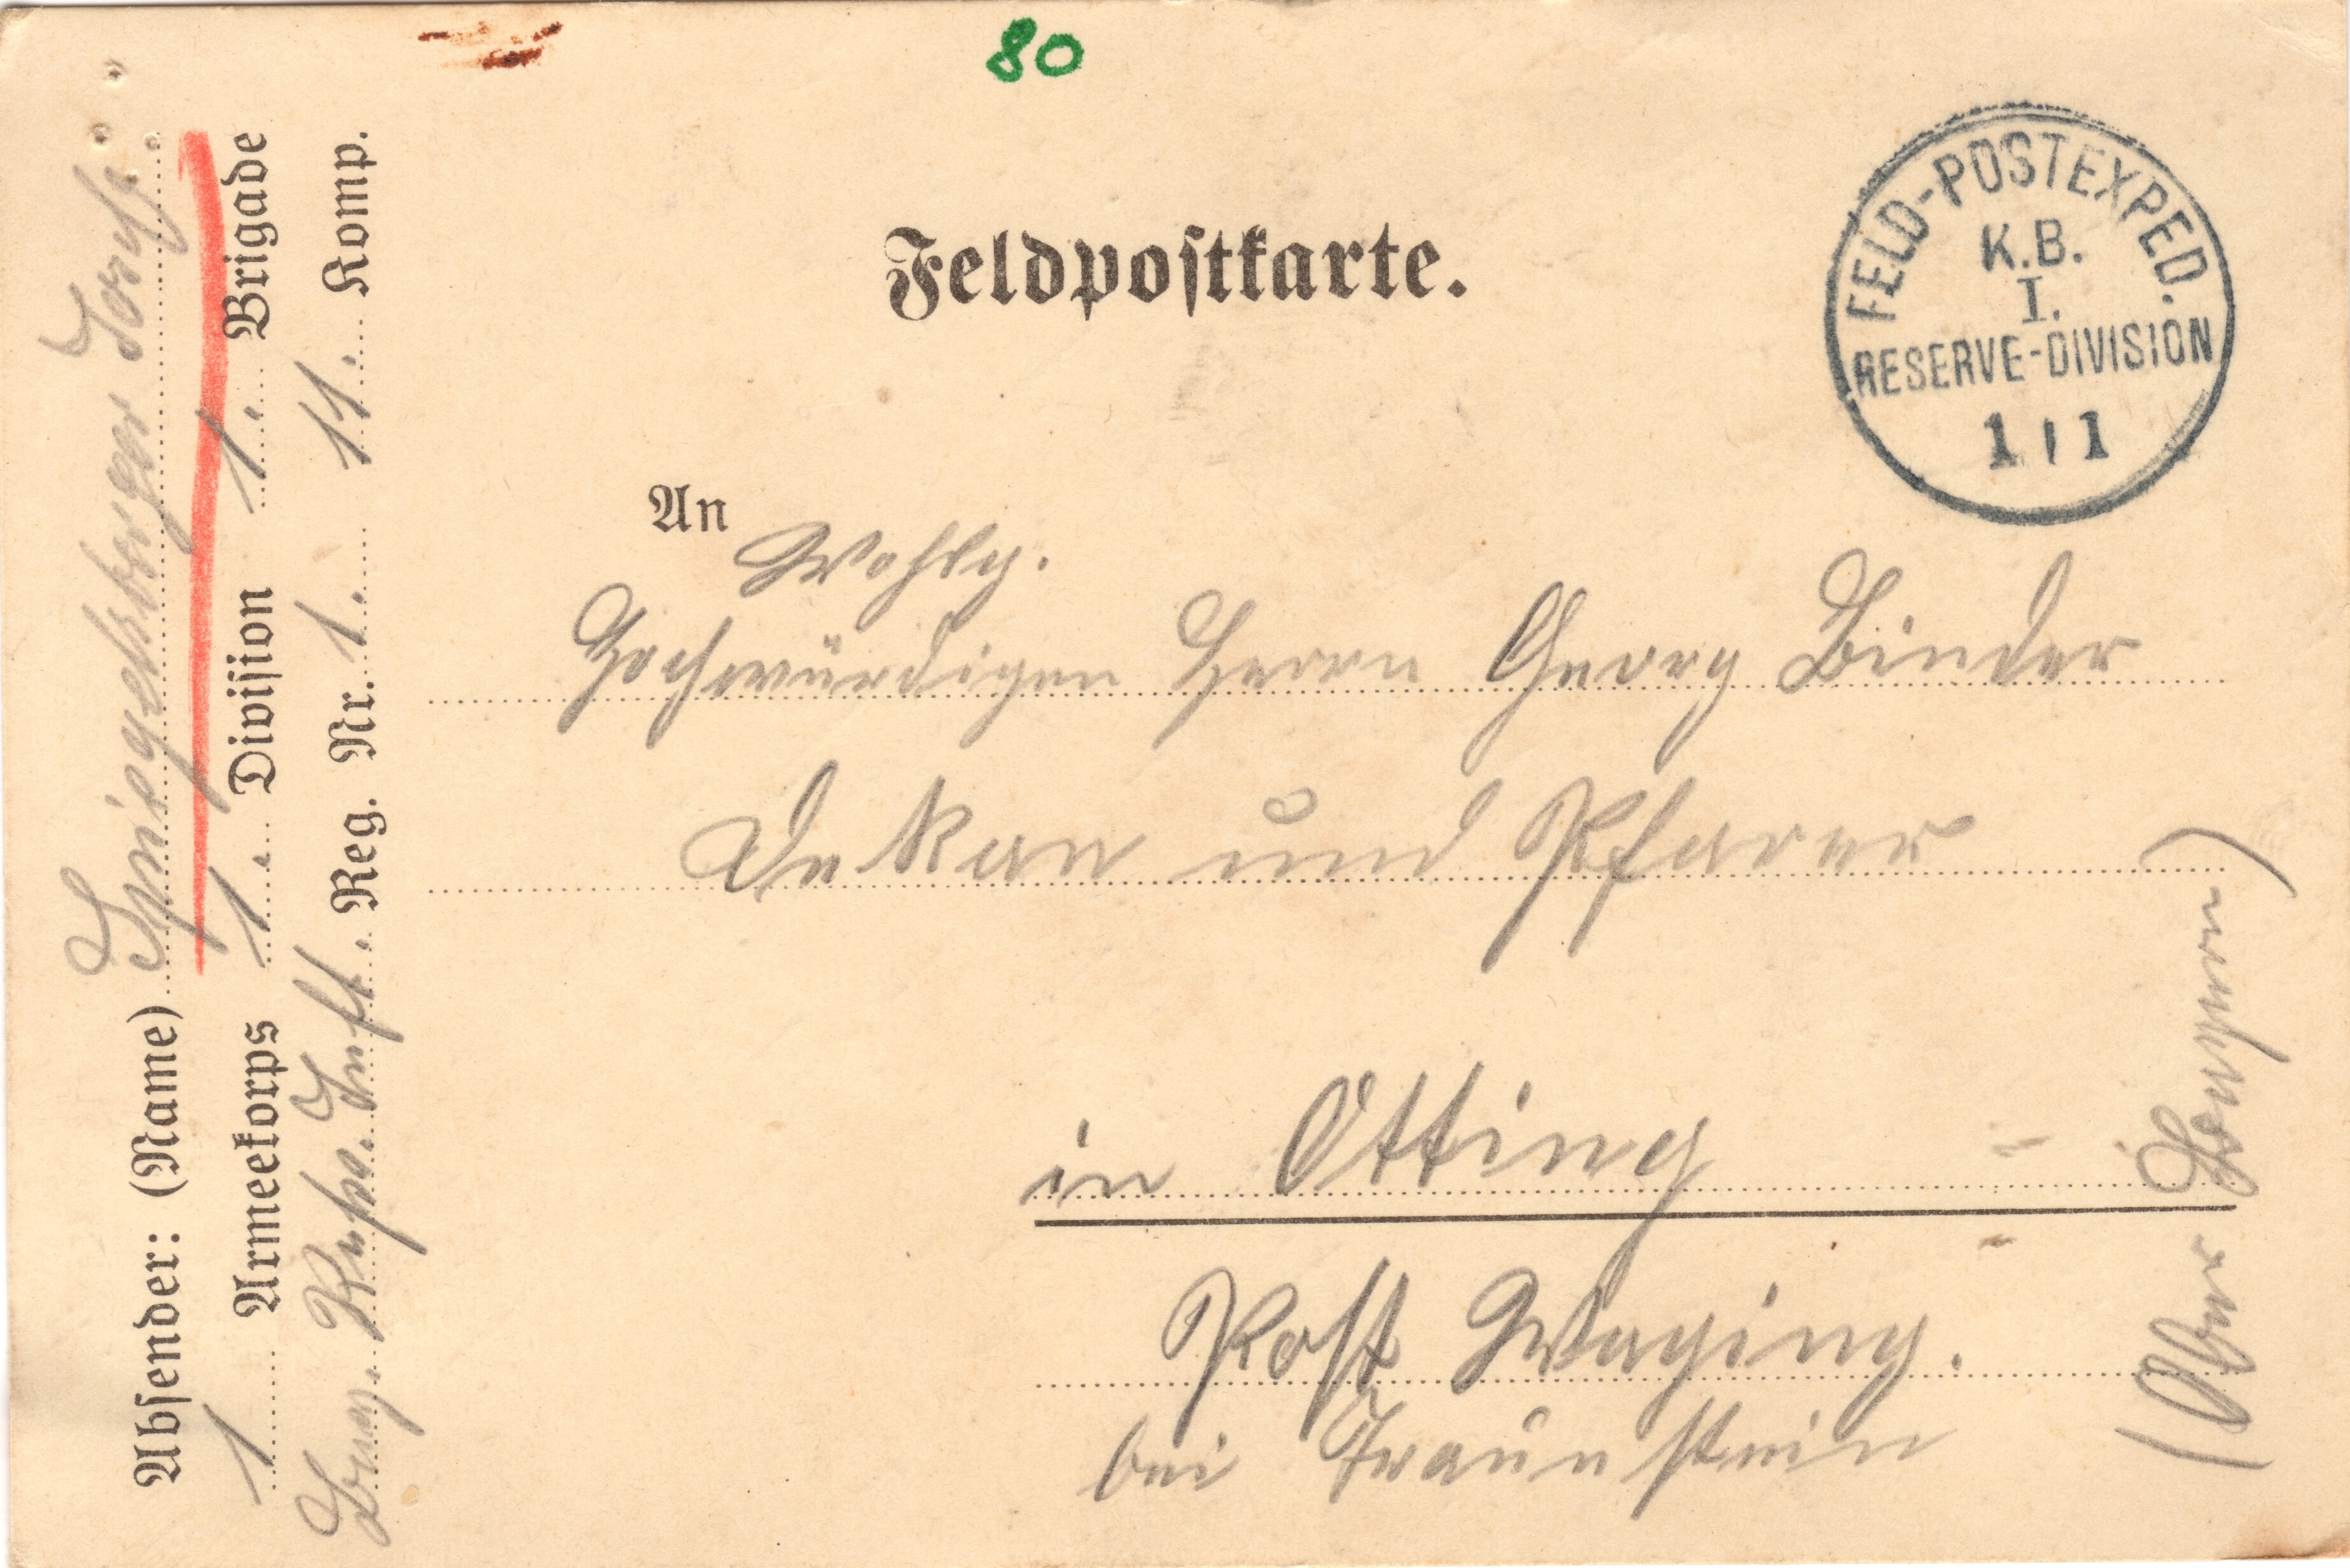 80
Feldpostkarte.
FELD-POSTEXPED.
K.B.
I.
RESERVE-DIVISION
1 1
An
Wohlg.
Hochwürdigen Herrn Georg Binder
Dekan und Pfarer
in Otting
Post Waging.
bei Traunstein
(Ober Bayern)
Absender: (Name) Josef
1 Armeekorps 1. Division 1. Brigade
Bay. Inft. Reg. Nr. 1. 11. Komp.